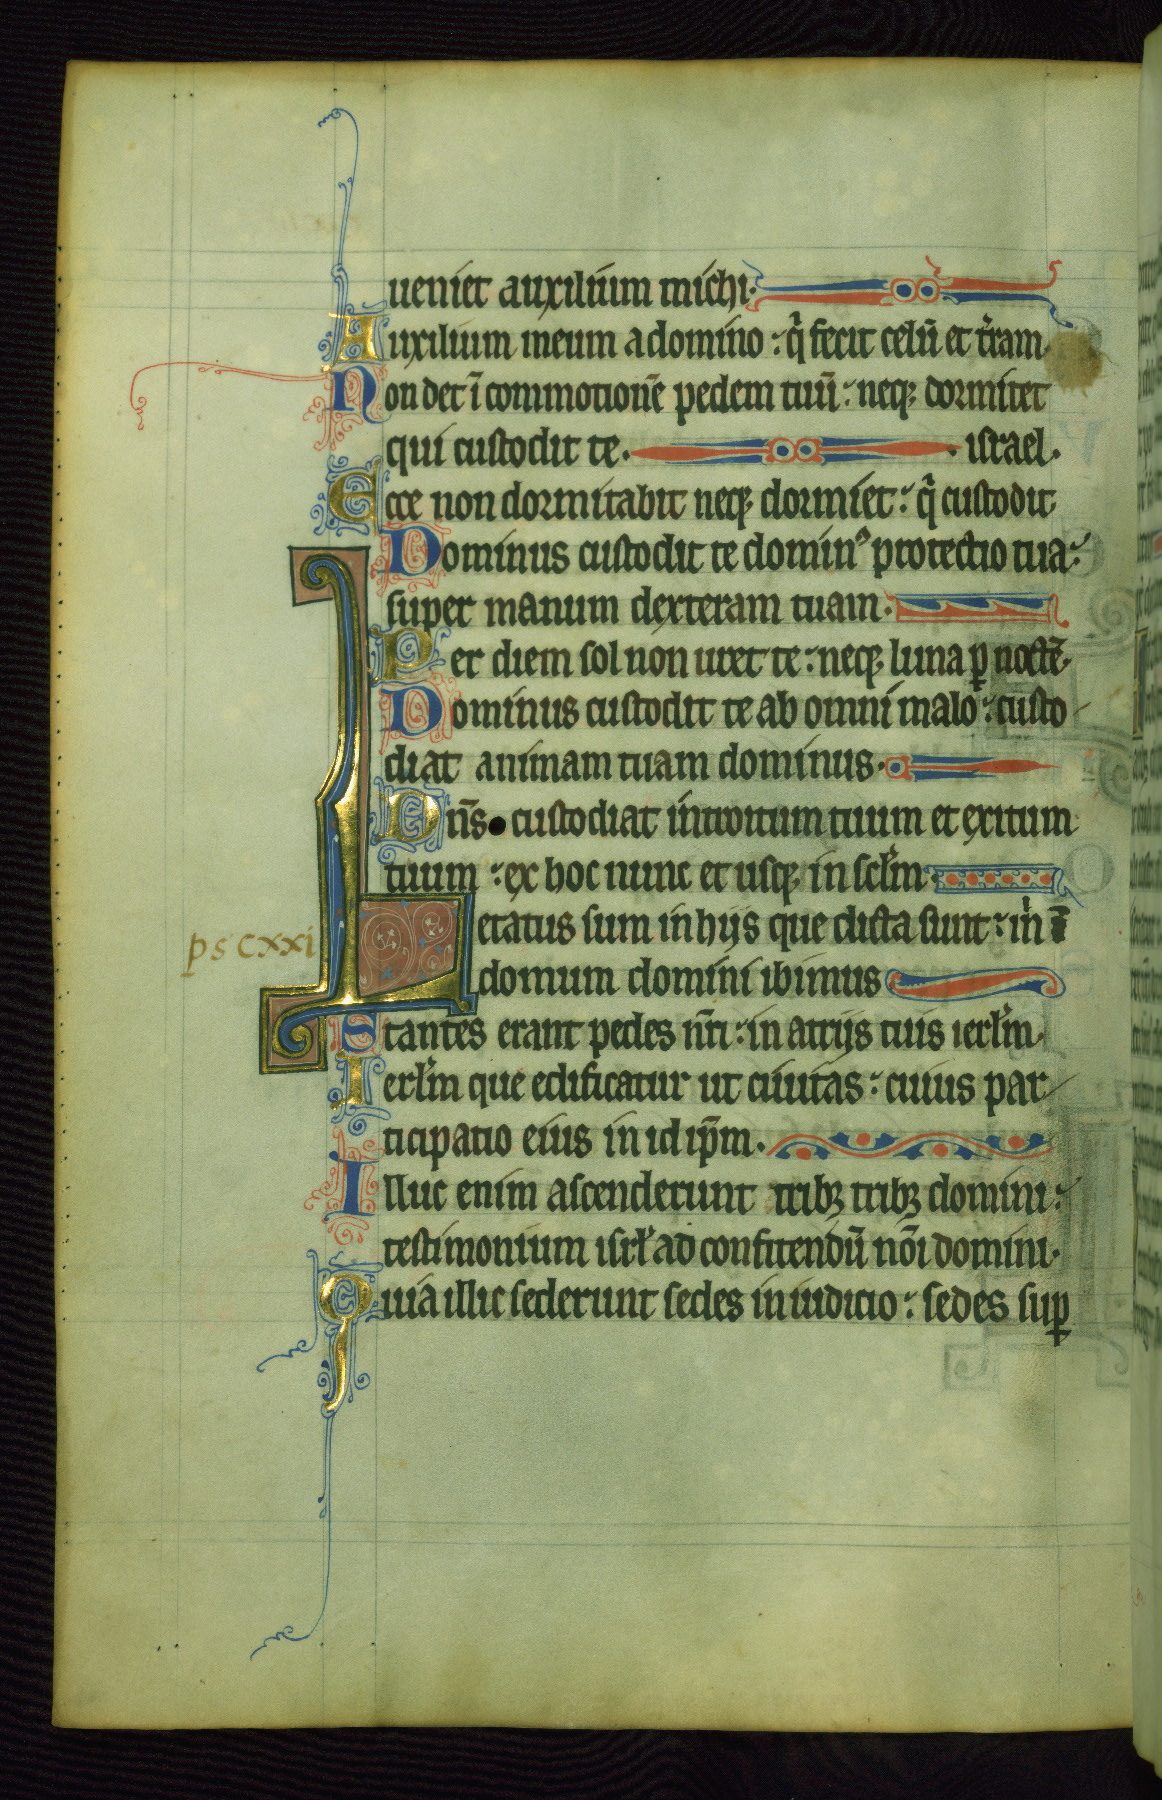 ueniet auxilium michi.
Auxilium meum a domino : q̄ fecit celū et t̄ram.
Non det ī commotionē pedem tuū : neq; dormitet
qui custodit te. israel.
Ecce non dormitabit neq; dormiet : q̄ custodit
Dominus custodit te dominꝰ protectio tua :
super manum dexteram tuam.
Per diem sol non uret te : neq; luna ꝑ noctē.
Dominus custodit te ab omni malo : custo-
diat animam tuam dominus.
Dn̄s custodiat introitum tuum et exitum
tuum : ex hoc nunc et usq; in sclm̄.
ps cxxi Letatus sum in hijs que dicta sunt : m̄ ī
domum domini ibimus
Stantes erant pedes nr̄i : in atrijs tuis ierl̄m.
Ierl̄m que edificatur ut ciuitas : cuius par-
ticipatio eius in id ip̄m.
Illuc enim ascenderunt tribꝫ tribꝫ domini :
testimonium isrl̄ ad confitendū nōi domini.
Quia illic sederunt sedes in iudicio : sedes suꝑ